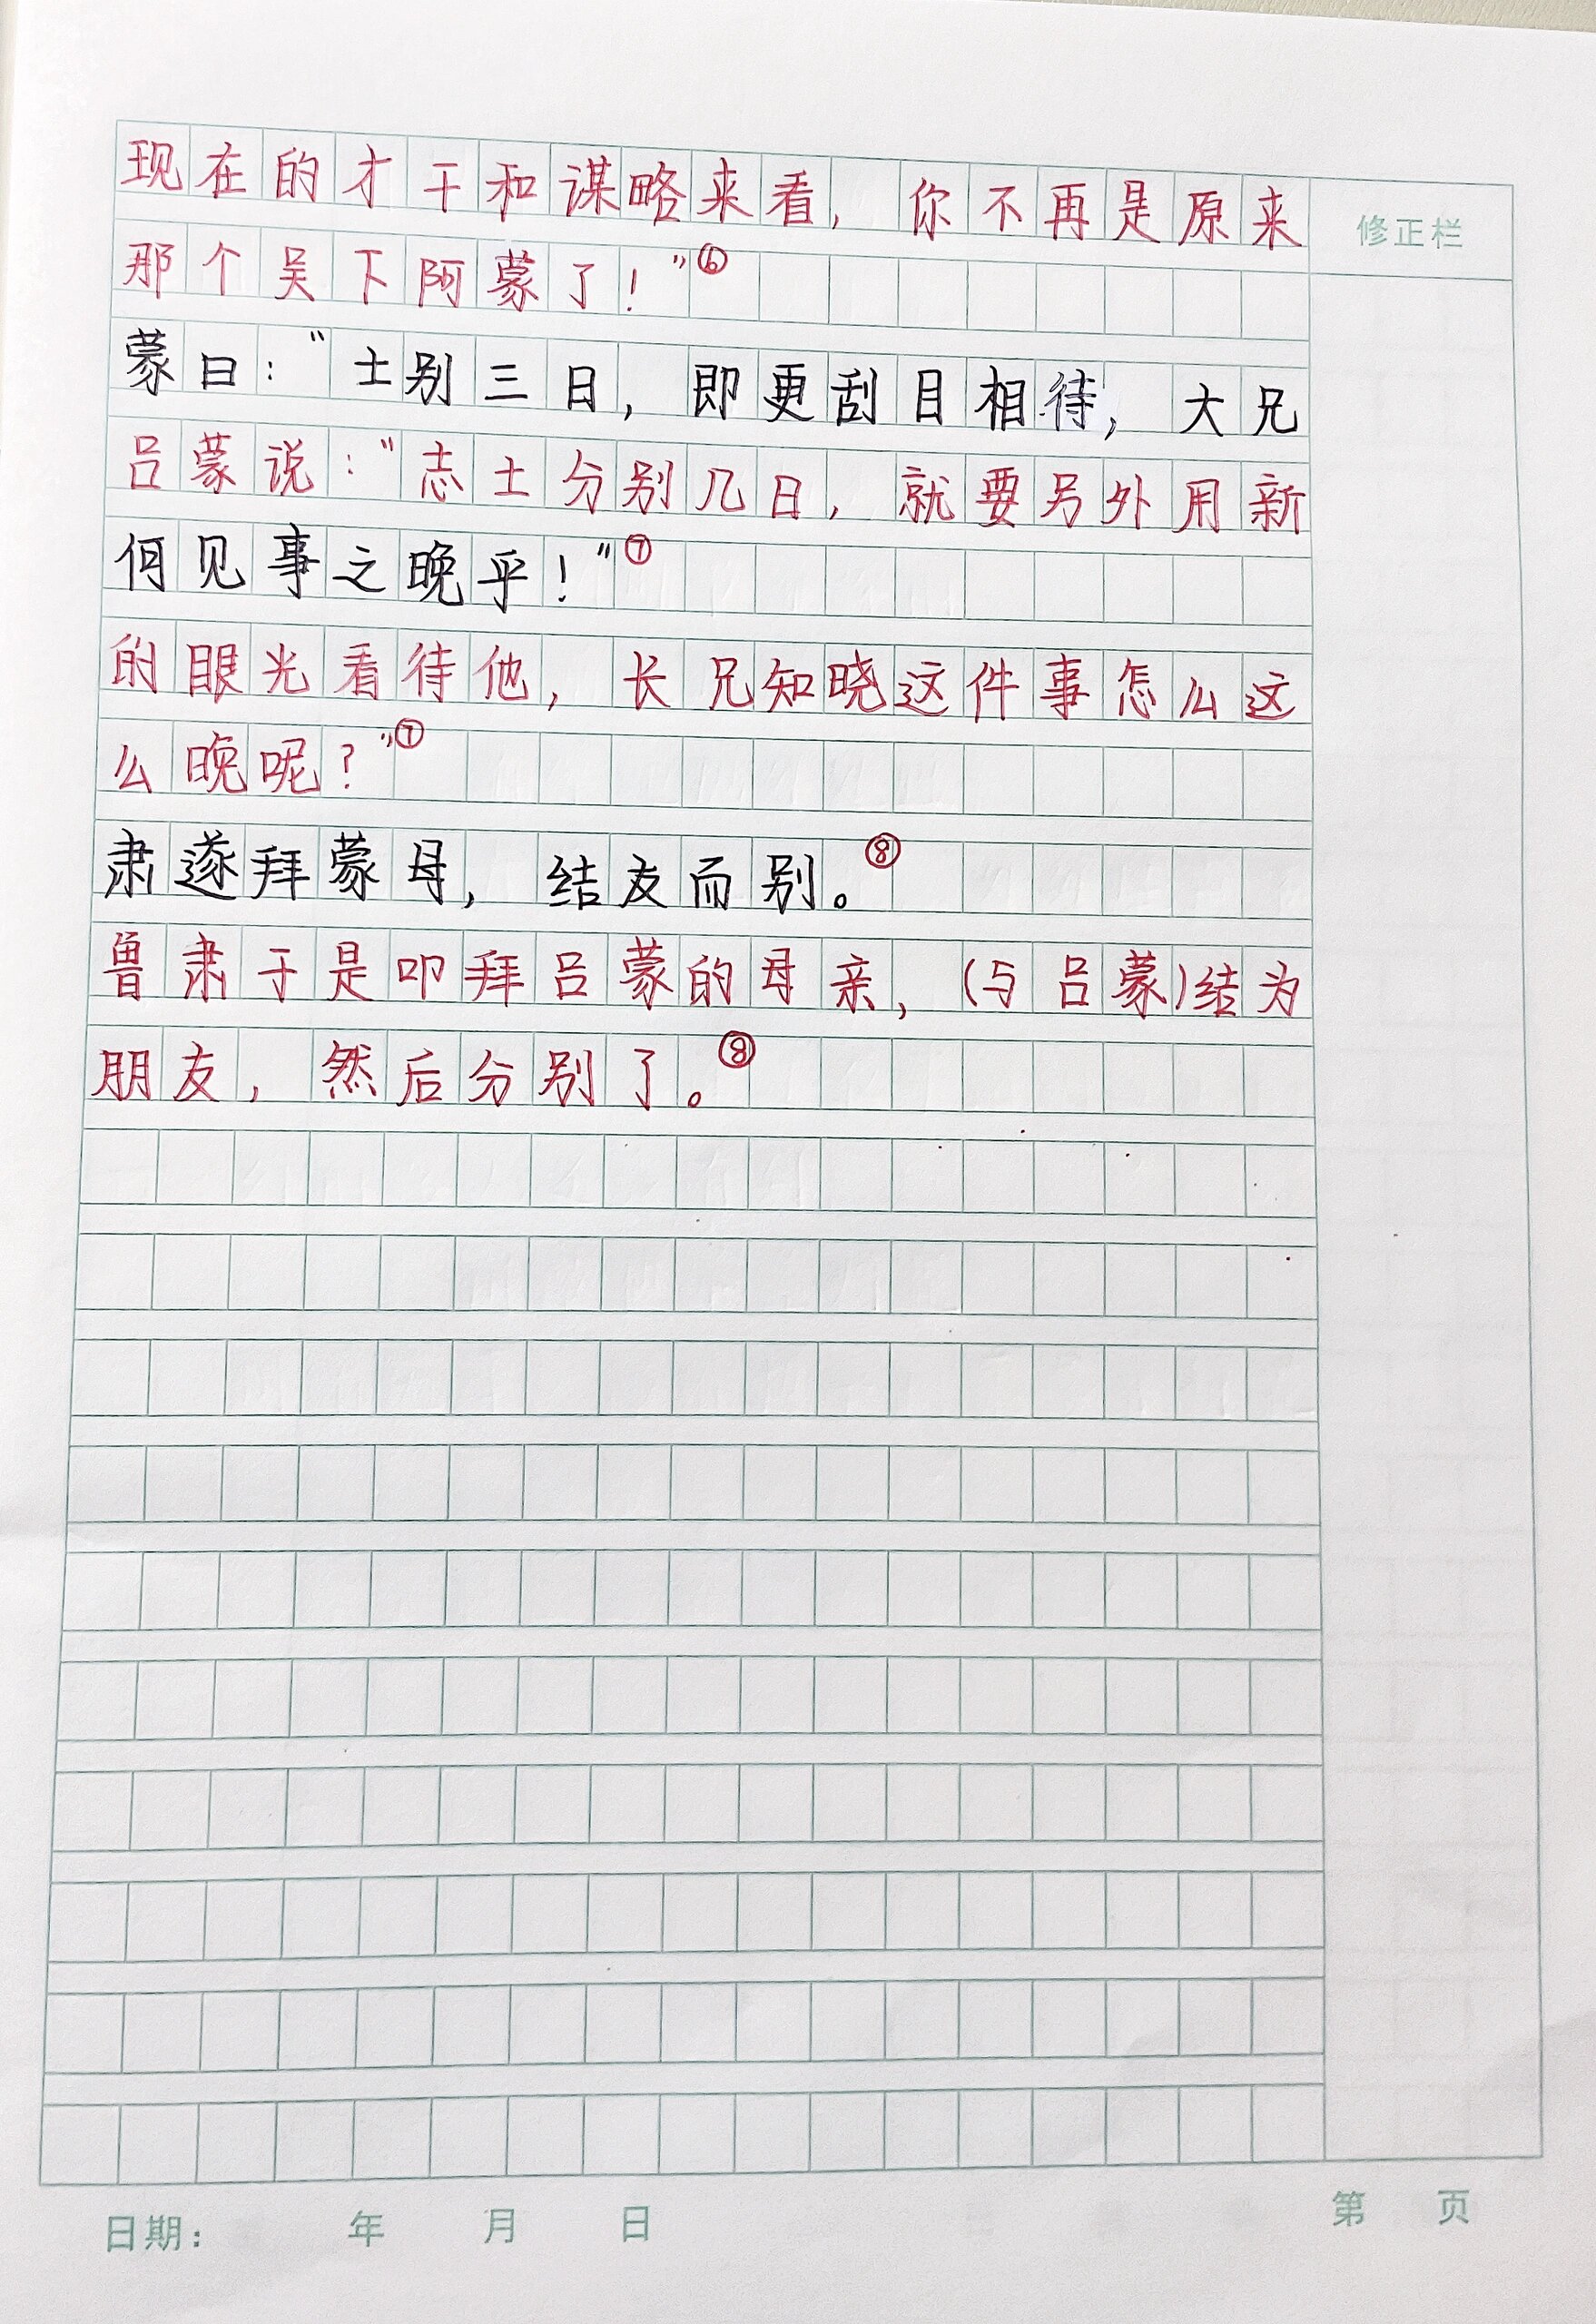 现在的才干和谋略来看，你不再是原来
修正栏
那个吴下阿蒙了！”⑥
蒙曰：“士别三日，即更刮目相待，大兄
吕蒙说：“志士分别几日，就要另外用新
何见事之晚乎！”⑦
的眼光看待他，长兄知晓这件事怎么这
么晚呢？”⑦
肃遂拜蒙母，结友而别。⑧
鲁肃于是叩拜吕蒙的母亲，(与吕蒙)结为
朋友，然后分别了。⑧
日期： 年 月 日
第 页